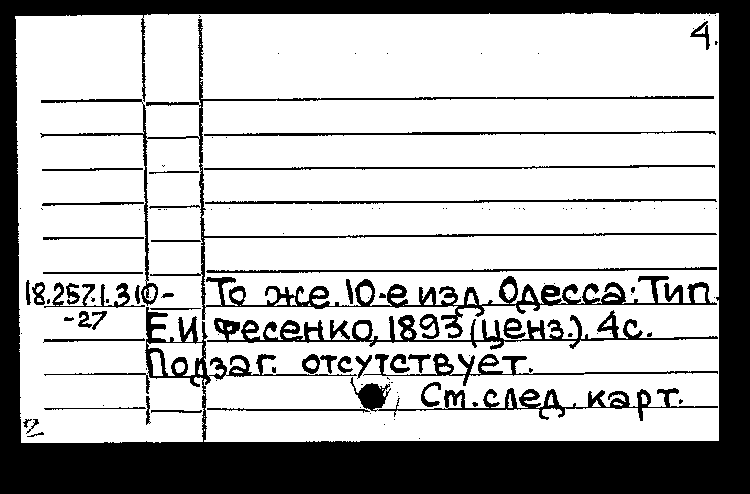 4.
18.257.1.310- То же. 10-е изд. Одесса: Тип.
-27 Е.И. Фесенко, 1893 (ценз.). 4с.
Подзаг. отсутствует.
Ст. след. карт.
2